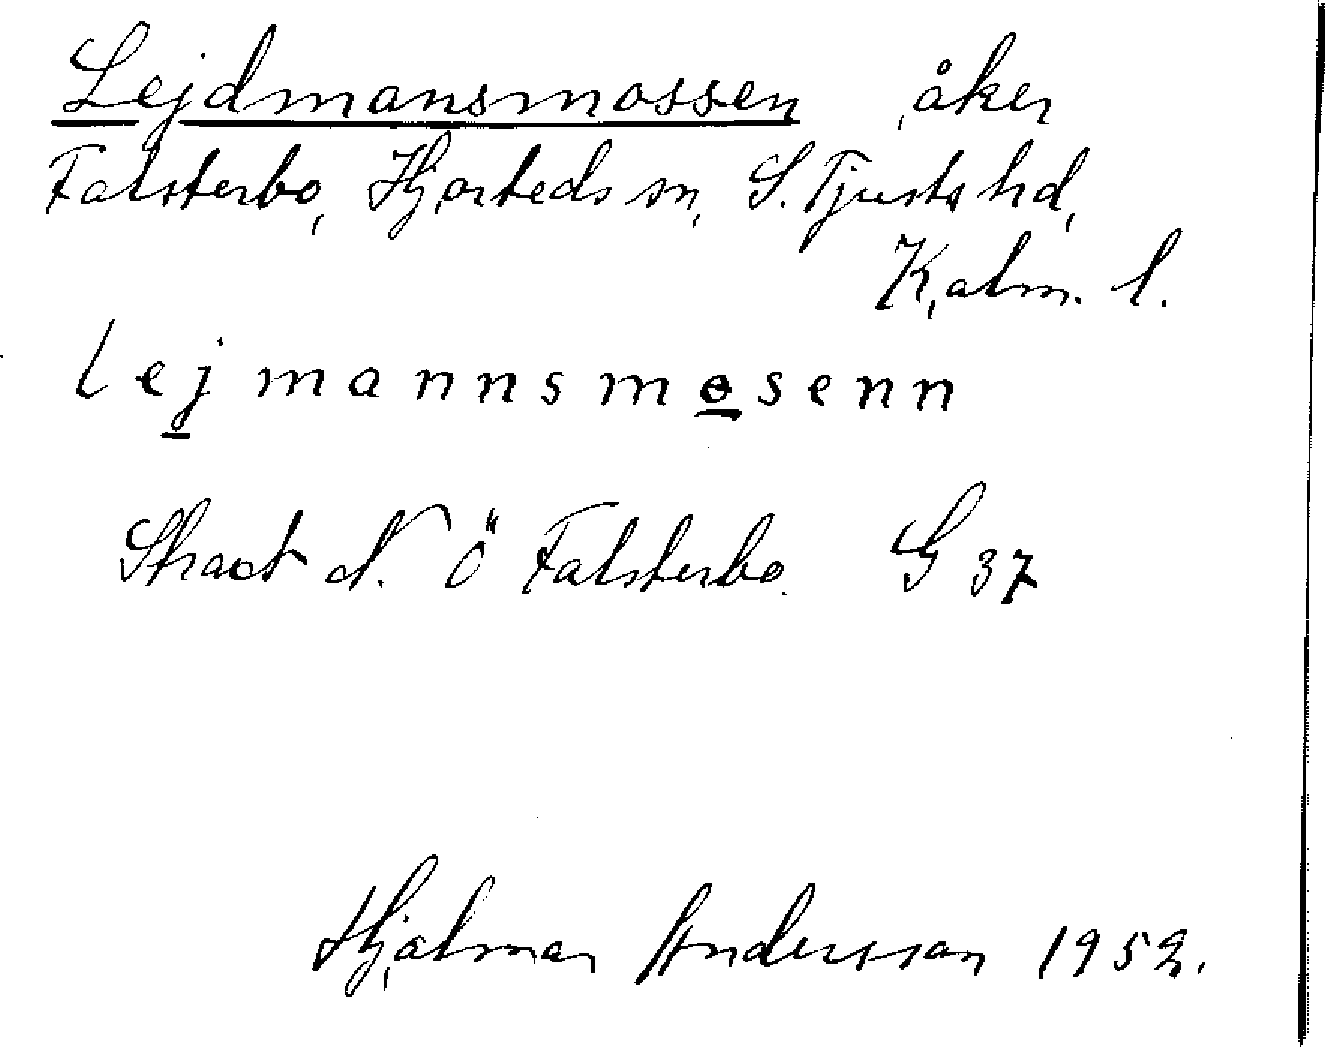 Lejdmansmossen åker
Falsterbo, Hjorteds sn, S. Tjusts hd,
Kalm. l.
lejmannsmosenn
Strax N. Ö Falsterbo. G 37
Hjalmar Andersson 1952.